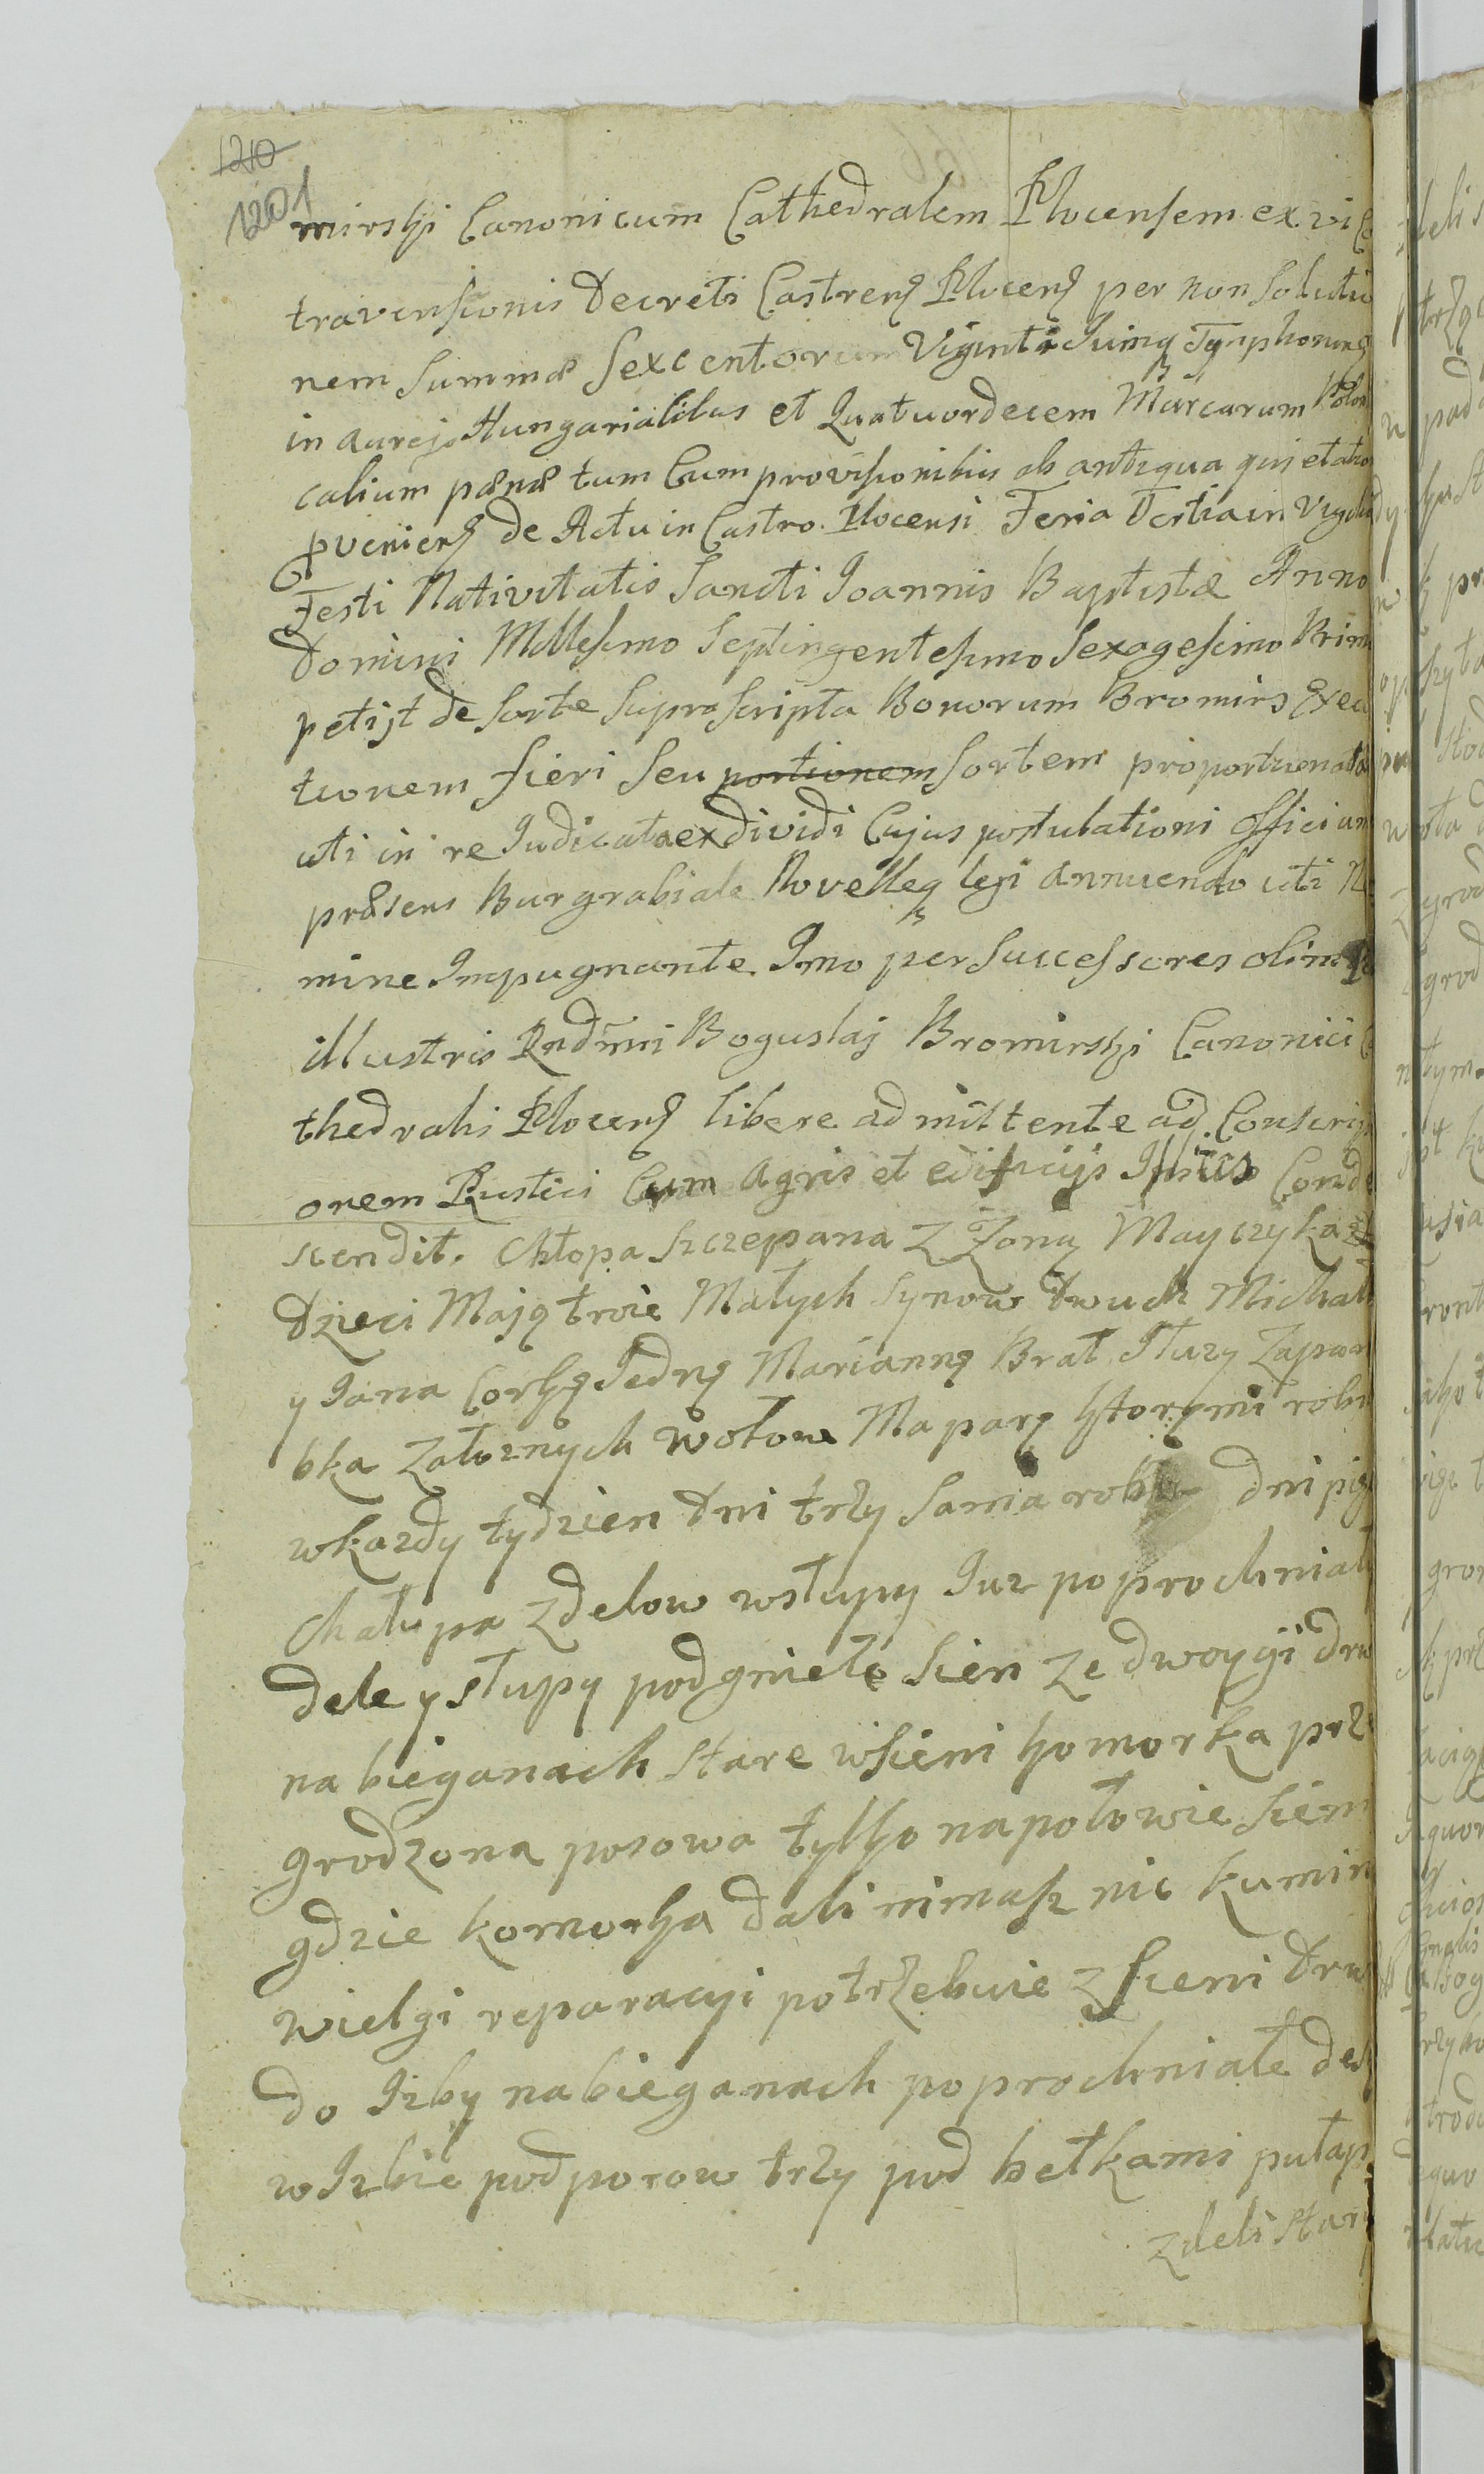 120
1201
mirski Canonicum Cathedralem Plocensem ex vi Co
travensionis Decreti Castrens Plocens per non Solutio
nem Summæ Sexcentorum Viginti Quinq Tymphonum
in aureis Hungarialibus et Quatuordecem Marcarum Polon
calium pænæ tum Cum provisionibus ab antiqua quietatio
proveniens de Actu in Castro Plocensi Feria Tertia in Vigilia
Festi Nativitatis Sancti Joannis Baptistæ Anno
Domini Millesimo Septingentesimo Sexagesimo Prim
petijt de Sorte Suprascripta Bonorum Bromirz Execu
tionem fieri Seu portionem Sortem proportionata
uti in re Judicata exdividi Cujus postulationi Officium
præsens Burgrabiale Novellęq legi annuendo uti Ne
mine Impugnante Imo per Successores olim Per
illustris Rndmi Boguslaj Bromirski Canonici Ca
thedralis Plocens libere admittente ad Conscrip
onem Rustici Cum Agris et edificijs Ipsius Conde
scendit. Chłopa Szczepana z Zoną Mayczyka
Dzieci Mają troie Małych Synow dwuch Michała
y Jana Corkę Jedne Mariannę Brat Słuzy Za par
bka Załoznych wołow Ma parę ktorymi robi
w kazdy tydzien dni trzy Sama robi dni pię
Chałupa z delow w słupy Juz poprochniał
dele y słupy podgniełe Sien ze dwoygi drw
na bieganach stare w Sieni komorka prze
grodzona posowa tylko na połowie Sieni
gdzie komorka dali nimasz nic kumin
wielgi reparacyi potrzebuie z Sieni drw
do Izby na bieganach poprochniałe des
w Izbie podporow trzy pod bełkami pułap
z deli star